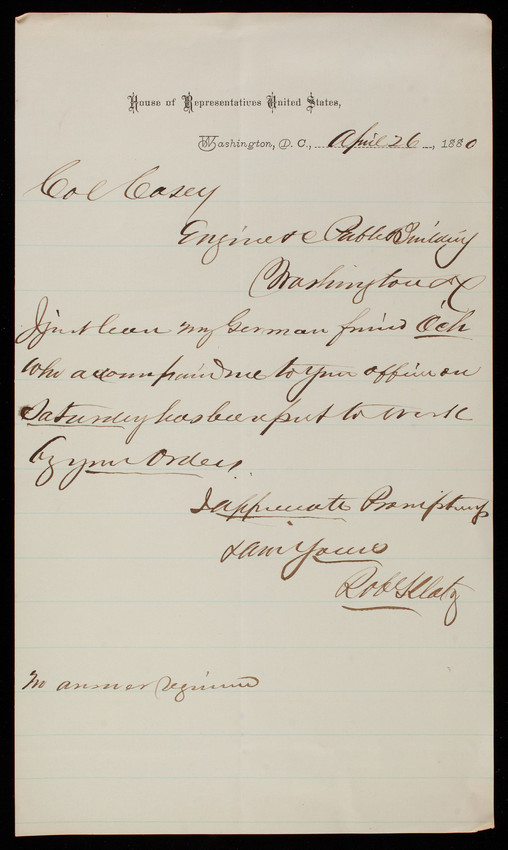 House of Representatives United States,
Washington, D. C., April 26, 1880
Col Casey
Engineer Public Building
Washington DC
I just learn my German friend Och
who accompanied me to your office on
Saturday has been put to work
by your Orders
I appreciate Promptness
& am Yours
Robt Klotz
No answer required